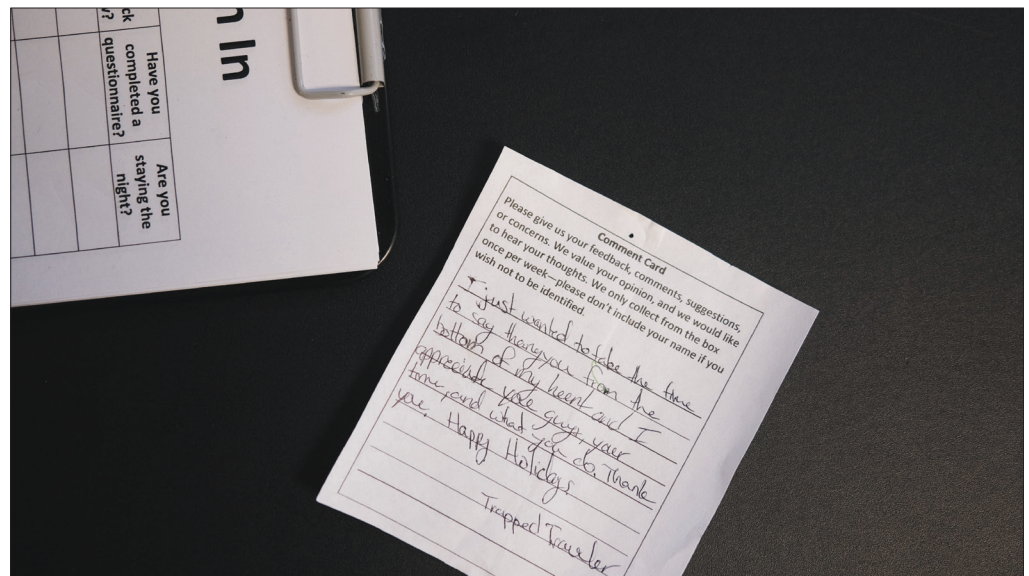 n In
ck
y?
Have you
completed a
questionnaire?
Are you
staying the
night?
Comment Card
Please give us your feedback, comments, suggestions,
or concerns. We value your opinion, and we would like
to hear your thoughts. We only collect from the box
once per week—please don't include your name if you
wish not to be identified.
I just wanted to take the time
to say thankyou from the
bottom of my heart and I
appreciate you guys, your
time, and what you do. Thank
you. Happy Holidays
Trapped Traveler